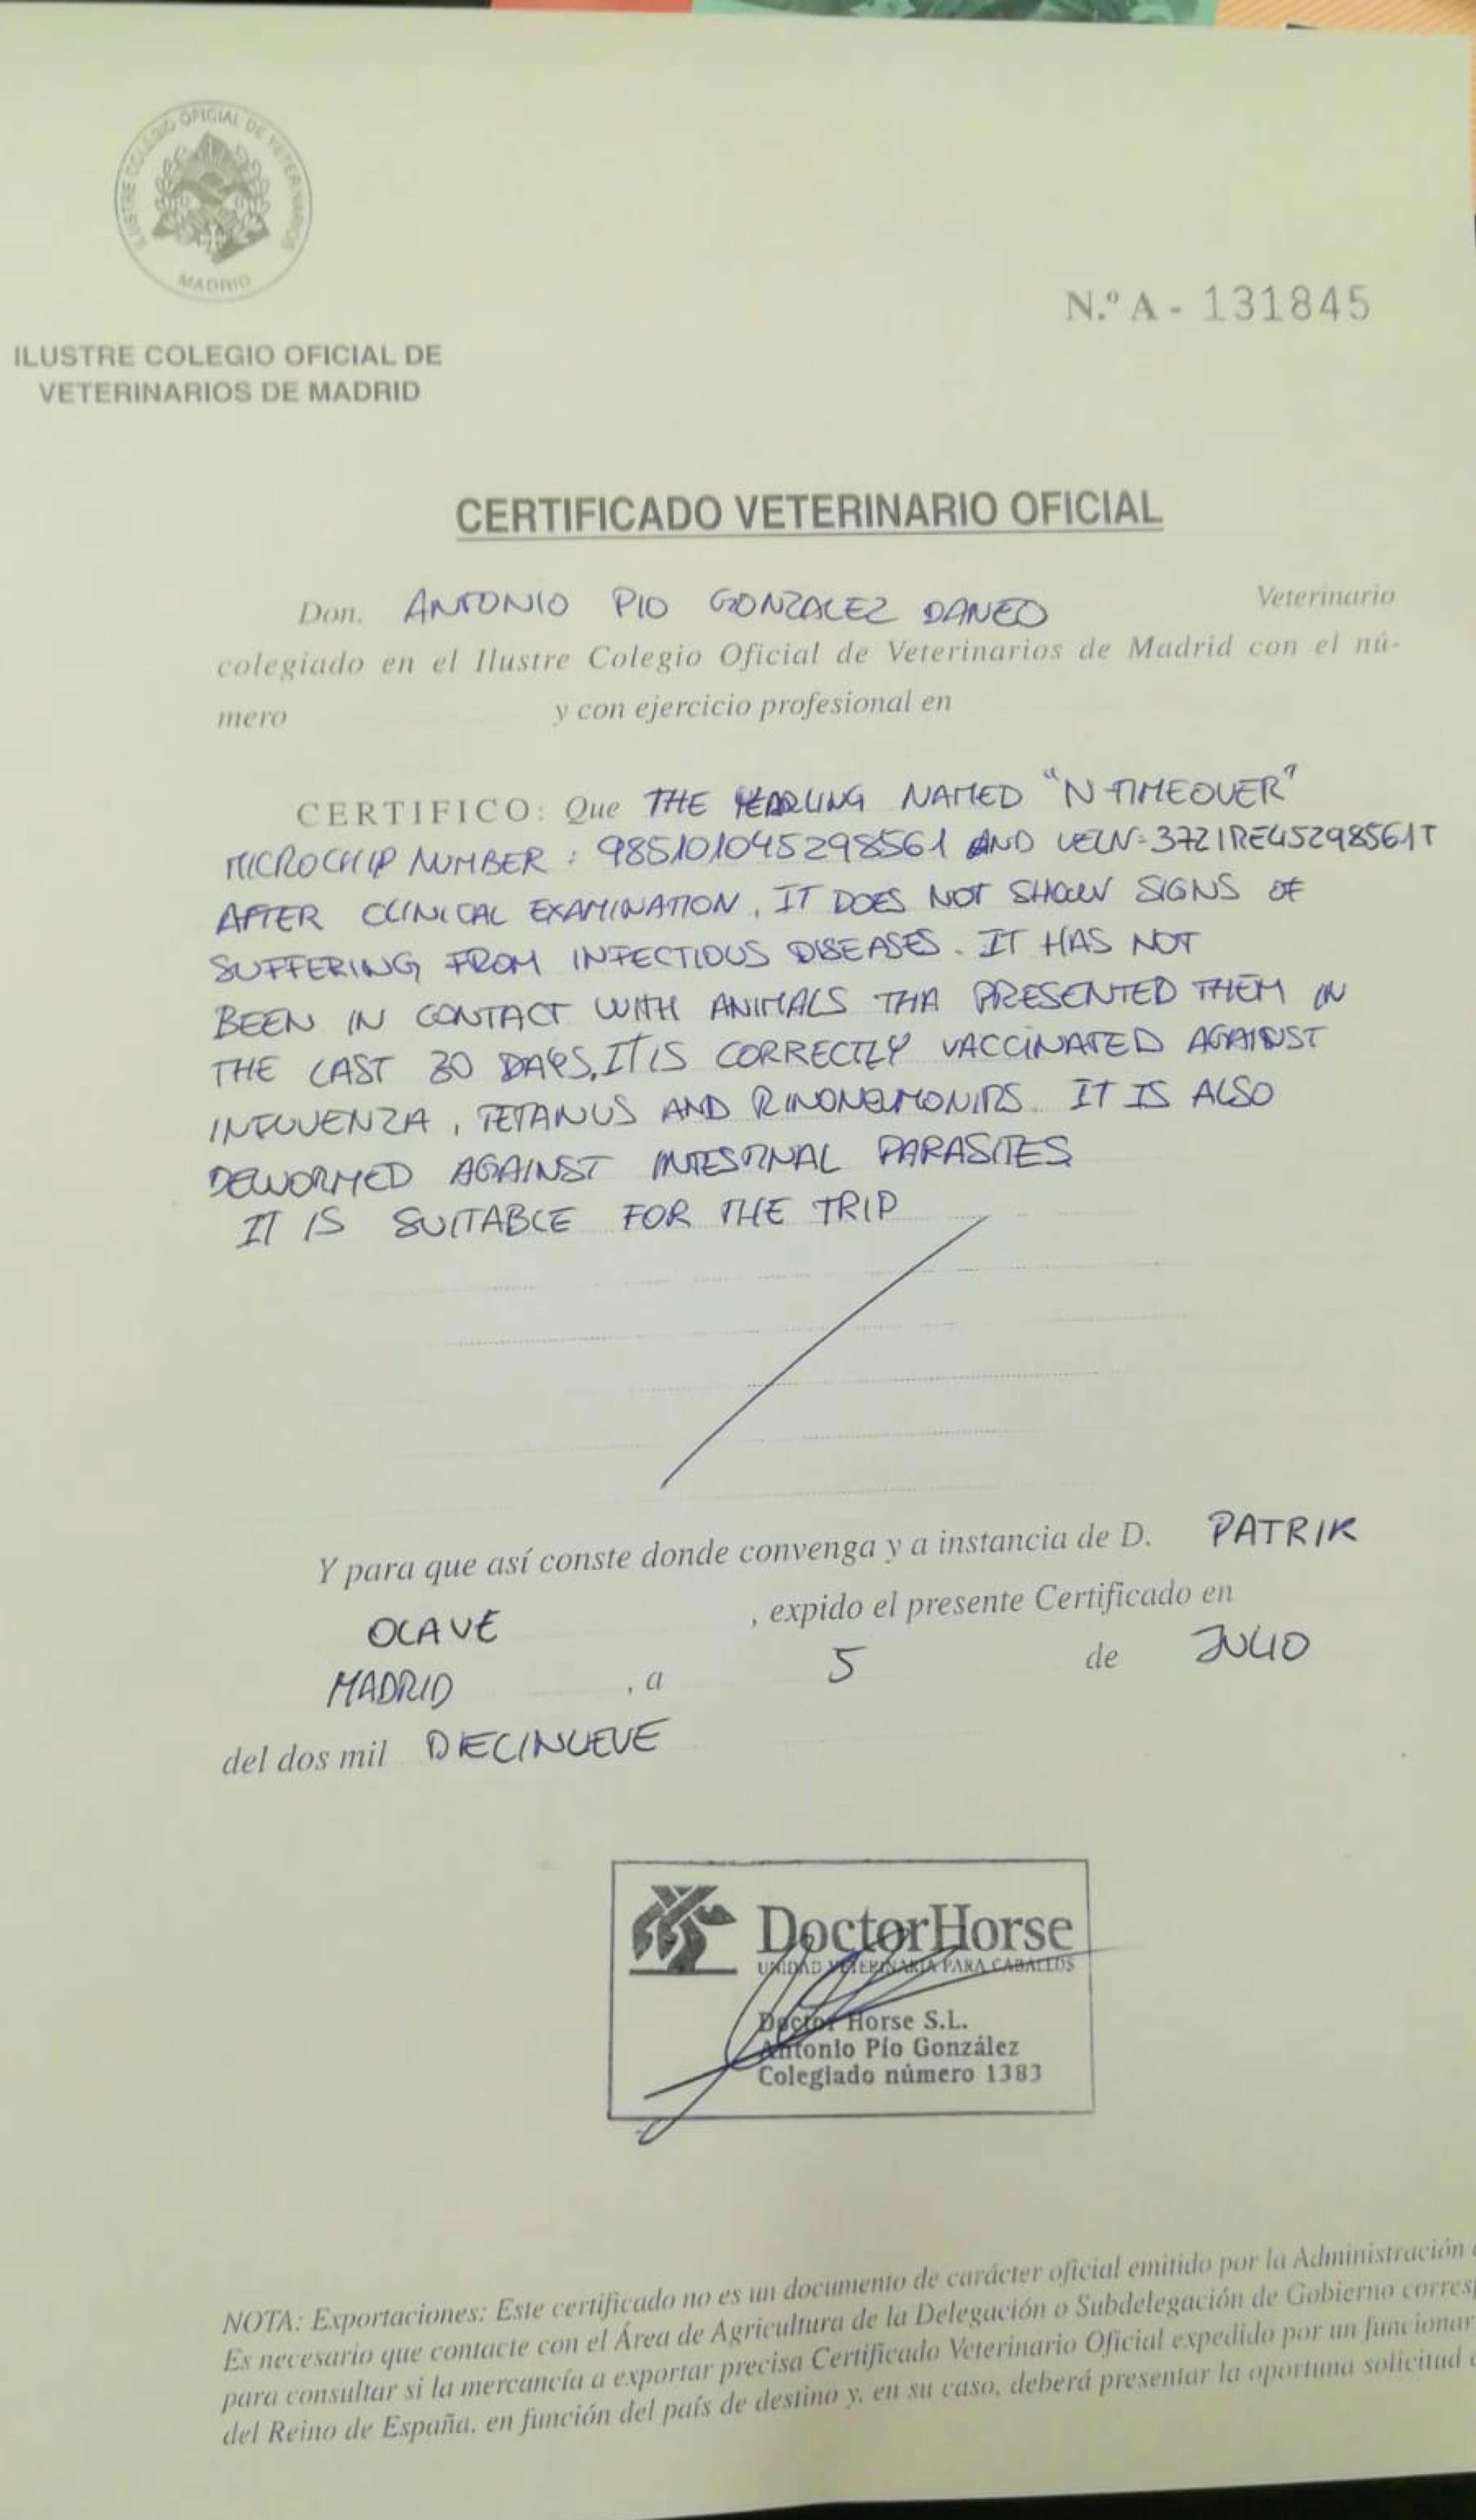 ILUSTRE COLEGIO OFICIAL DE VETERINARIOS
MADRID
N.º A - 131845
ILUSTRE COLEGIO OFICIAL DE
VETERINARIOS DE MADRID
CERTIFICADO VETERINARIO OFICIAL
Don. ANTONIO PIO GONZALEZ DANEO Veterinario
colegiado en el Ilustre Colegio Oficial de Veterinarios de Madrid con el nú-
mero y con ejercicio profesional en
CERTIFICO: Que THE YEARLING NAMED "N-TIMEOVER"
MICROCHIP NUMBER : 985101045298561 AND UELN=372IRE45298561T
AFTER CLINICAL EXAMINATION, IT DOES NOT SHOW SIGNS OF
SUFFERING FROM INFECTIOUS DISEASES. IT HAS NOT
BEEN IN CONTACT WITH ANIMALS THA PRESENTED THEM IN
THE LAST 30 DAYS. IT IS CORRECTLY VACCINATED AGAINST
INFLUENZA, TETANUS AND . IT IS ALSO
DEWORMED AGAINST INTESTINAL PARASITES
IT IS SUITABLE FOR THE TRIP
Y para que así conste donde convenga y a instancia de D. PATRIK
OLAVE , expido el presente Certificado en
MADRID , a 5 de JULIO
del dos mil DIECINUEVE
DoctorHorse
UNIDAD VETERINARIA PARA CABALLOS
Doctor Horse S.L.
Antonio Pío González
Colegiado número 1383
NOTA: Exportaciones: Este certificado no es un documento de carácter oficial emitido por la Administración
Es necesario que contacte con el Área de Agricultura de la Delegación o Subdelegación de Gobierno corres
para consultar si la mercancía a exportar precisa Certificado Veterinario Oficial expedido por un funcionar
del Reino de España, en función del país de destino y, en su caso, deberá presentar la oportuna solicitud